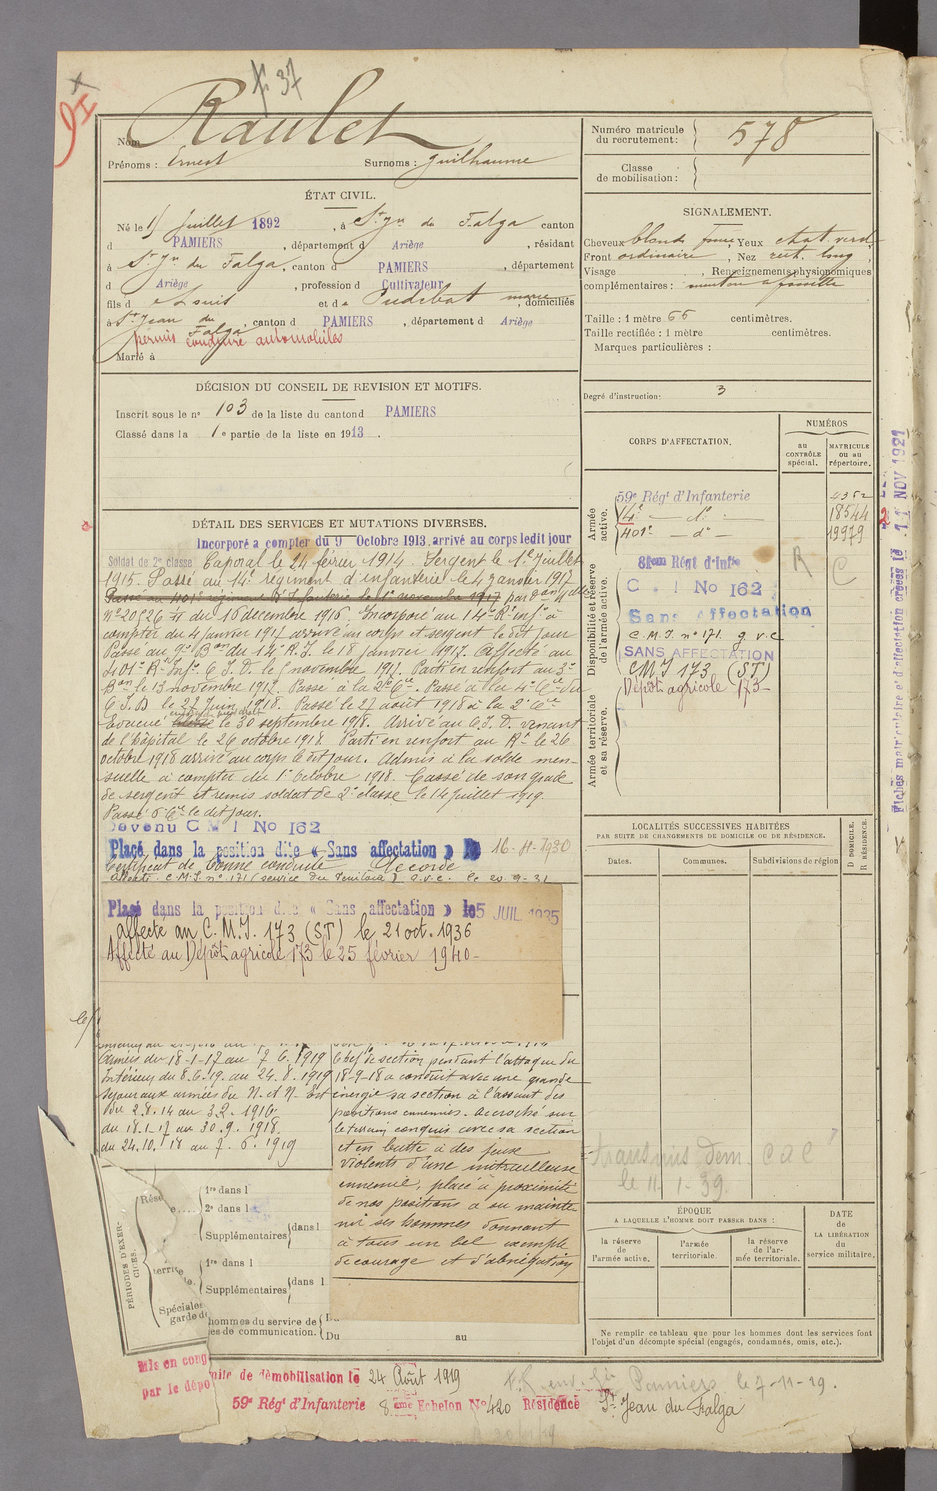 N° 37
91
Nom Raulet
Prénoms : Ernest Surnoms : Guilhaume
ÉTAT CIVIL.
Né le 1 Juillet 1892, à St Jn du Falga canton
d PAMIERS, département d Ariège, résidant
à St Jn du Falga, canton d PAMIERS, département
d Ariège, profession d Cultivateur
fils d e Louis et d e Pudebat marie, domiciliés
à St Jean du Falga, canton d PAMIERS, département d Ariège
permis conduire automobiles
Marié à
DÉCISION DU CONSEIL DE REVISION ET MOTIFS.
Inscrit sous le n° 103 de la liste du canton d PAMIERS
Classé dans la 1e partie de la liste en 1913.
DÉTAIL DES SERVICES ET MUTATIONS DIVERSES.
Incorporé a compter du 9 Octobre 1913, arrivé au corps ledit jour
Soldat de 2e classe Caporal le 24 février 1914. Sergent le 1er Juillet
1915. Passé au 14e régiment d'infanterie le 4 janvier 1917
Passé au 401e régiment d'Infanterie le 1er novembre 1917 par
du 16 decembre 1916. Incorporé au 14e Rt infie à
compter du 4 janvier 1917 arrivé au corps et sergent le dit jour
Passé au 9e Bon du 14e R.I. le 18 janvier 1917. Affecté au
401e Rt Infie C.I.D. le 1 novembre 1917. Parti en renfort au 3e
Bon le 13 novembre 1917. Passé à la Cie. Passé à la 4e Cie du
C I D le 27 Juin 1918. Passé le 27 août 1918 à la 2e Cie
Evacué le 30 septembre 1918. Arrivé au C.I.D. venant
de l'hôpital le 26 octobre 1918. Parti en renfort au Rt le 26
octobre 1918 arrivé au corps le dit jour. Admis à la solde men-
suelle à compter du 1er Octobre 1918. Cassé de son grade
de sergent et remis soldat de 2e classe le 14 juillet 1919.
Passé 6e Cie le dit jour.
Devenu C M I No 162
Placé dans la position dite « Sans affectation » le 16-11-1930
Certificat de bonne conduite Accordé
affecté C.M.I. n° 171 (service du Territoire) G.V.C. le 20-9-31
Placé dans la position dite « Sans affectation » le 5 JUIL 1935
affecté au C.M.I. 173 (ST) le 21 oct. 1936
Affecté au Dépôt agricole 173 le 25 février 1940-
Armées du 18-1-17 au 7.6.1919
Intérieur du 8.6.19 au 24.8.1919
Séjour aux armées du N. et N. Est
du 2.8.14 au 3.2.1916
du 18.1.17 au 30.9.1918
du 24.10.18 au 7.6.1919
Chef de section pendant l'attaque du
18-9-18 a conduit avec une grande
énergie sa section à l'assaut des
positions ennemies. Accroché sur
le terrain conquis avec sa section
et en butte à des feux
violents d'une mitrailleuse
ennemie, placé à proximité
de nos positions a su mainte-
nir ses hommes donnant
à tous un bel exemple
de courage et d'abnégation
PÉRIODES D'EXER-
CICES.
Rése
territ
Spéciales
garde d
1re dans l
2e dans l
Supplémentaires dans l
1re dans l
Supplémentaires dans l
hommes du service de
es de communication. Du au
Mis en cong
par le dépo
mite de démobilisation le 24 Août 1919
59e Régt d'Infanterie 8eme Echelon N° 420 Résidence St Jean du Falga
Pamiers le 7-11-29.
Numéro matricule
du recrutement : 578
Classe
de mobilisation :
SIGNALEMENT.
Cheveux blonds foncé, Yeux chat. verd.
Front ordinaire, Nez rect. long
Visage , Renseignements physionomiques
complémentaires : menton à fossette
Taille : 1 mètre 66 centimètres.
Taille rectifiée : 1 mètre centimètres.
Marques particulières :
Degré d'instruction: 3
CORPS D'AFFECTATION.
NUMÉROS
au
CONTRÔLE
spécial.
MATRICULE
OU AU
répertoire.
Armée
active.
59e Régt d'Infanterie 4352
14e — do — 18544
401e — do — 19979
Disponibilité et réserve
de l'armée active.
81eme Régt d'Infie
C M I No 162
Sans Affectation
C.M.I. n° 171 G.V.C
SANS AFFECTATION
CMI 173 (ST)
Dépôt agricole 173-
R
C
Armée territoriale
et sa réserve.
LOCALITÉS SUCCESSIVES HABITÉES
PAR SUITE DE CHANGEMENTS DE DOMICILE OU DE RÉSIDENCE.
Dates.
Communes.
Subdivisions de région
D DOMICILE.
R RÉSIDENCE.
transmis dem. C a C
le 11-1-39.
ÉPOQUE
A LAQUELLE L'HOMME DOIT PASSER DANS :
la réserve
de
l'armée active.
l'armée
territoriale.
la réserve
de l'ar-
mée territoriale.
DATE
de
LA LIBÉRATION
du
service militaire.
Ne remplir ce tableau que pour les hommes dont les services font
l'objet d'un décompte spécial (engagés, condamnés, omis, etc.).
Fiches matriculaire et d'affectation créées le 11 NOV 1921